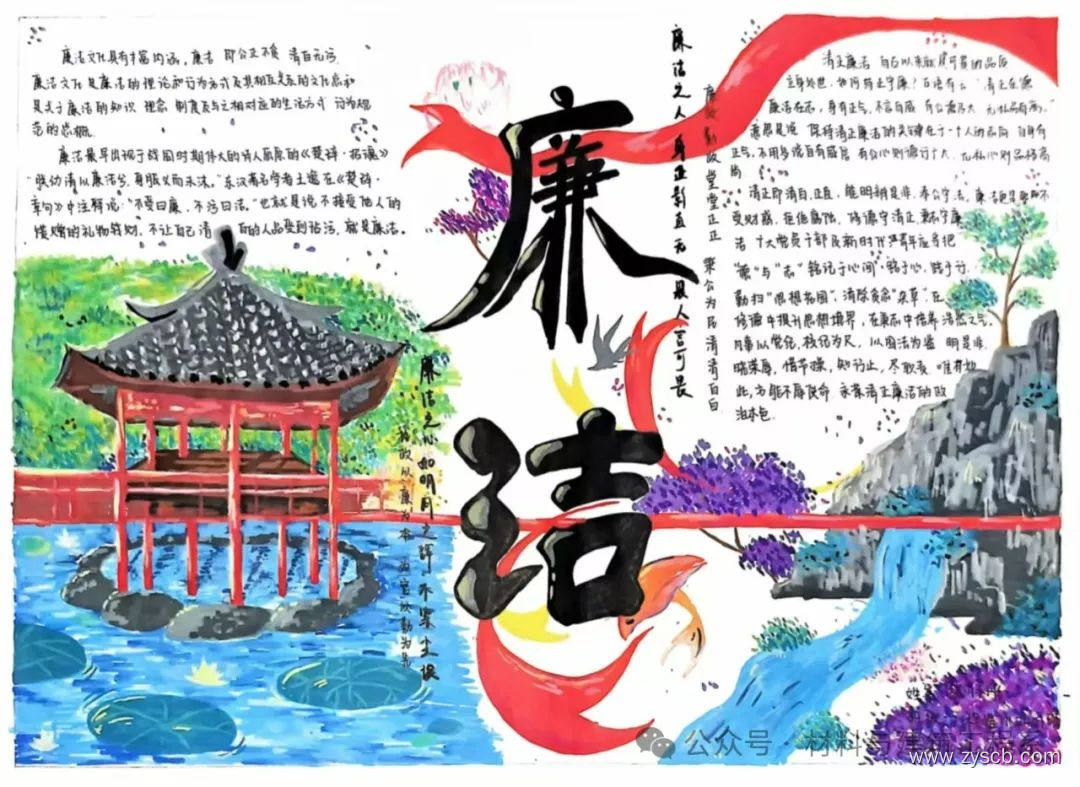 廉洁文化具有丰富内涵，廉洁 即公正不贪 清白无污
廉洁文化是廉洁的理论和行为方式及其相互关系的文化总和
是关于廉洁的知识 理念 制度及与之相对应的生活方式 行为规
范的总概
廉洁最早出现于战国时期伟大的诗人屈原的《楚辞·招魂》
"朕幼清以廉洁兮，身服义而未沫。"东汉著名学者王逸在《楚辞·
章句》中注释说："不受曰廉，不污曰洁。"也就是说不接受他人的
馈赠的礼物钱财，不让自己清 白的人品受到玷污，就是廉洁。
廉
洁
廉洁之人身正影直无
人言可
廉政勤政堂堂正正 秉公为民清清白白
廉洁之心如明月之辉 不
政以廉为本 为官以勤为先
清正廉洁 自古以来就是可贵的品质
立身处世，如何守廉？古语有云："清正在德
廉洁在志，身有正气，不言自威
意思是说 保持清正廉洁的关键在于一个人的志向 自身有
正气，不用多说自有威信 有公心则德行广大，无私心则品格高
尚
清正即清白、正直，能明辨是非、奉公守法，廉洁
受财腐，拒绝腐蚀，
洁 广大党员干部及新时代 青年应当把
"廉"与"志"铭记于心间，铭于心，践于行
勤扫"思想花园"，清除贪念"杂草"，在
修德中提升思想境界，在廉志中培养浩然之气
凡事以党纪，校纪为尺，以国法为鉴 明是非，
晓荣辱，惜节操，知行止，尽职责 唯有如
此，方能不辱使命 永葆清正廉洁的政
治本色
姓名
公众号·材料与建筑工程系
www.zyscb.com